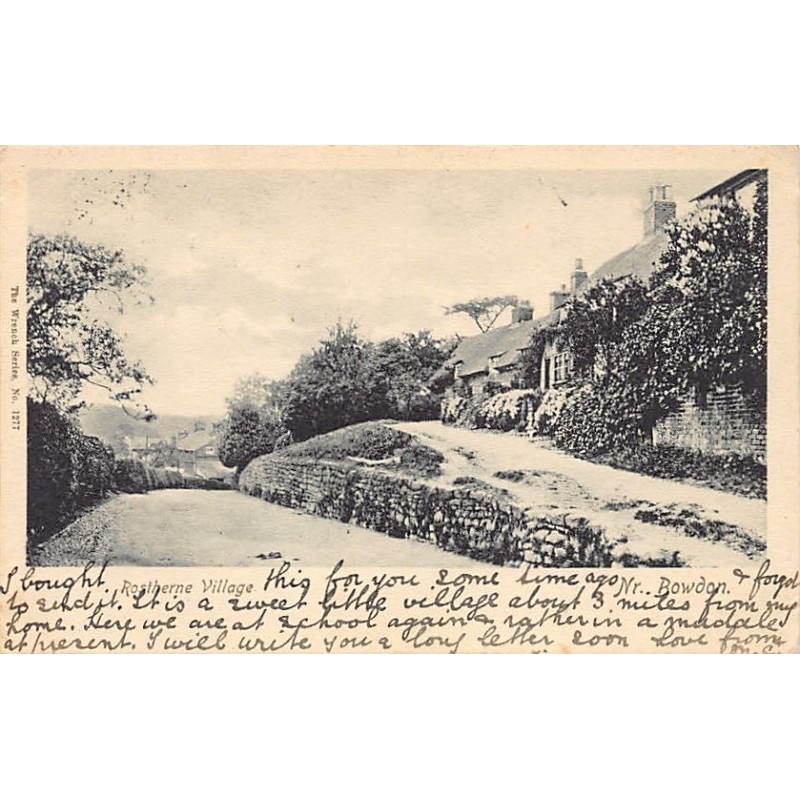 The Wrench Series, No. 1277
Rostherne Village Nr. Bowdon.
I bought this for you some time ago & forgot
to send it. It is a sweet little village about 3 miles from my
home. Here we are at school again & rather in a muddle
at present. I will write you a long letter soon love from
M.C.